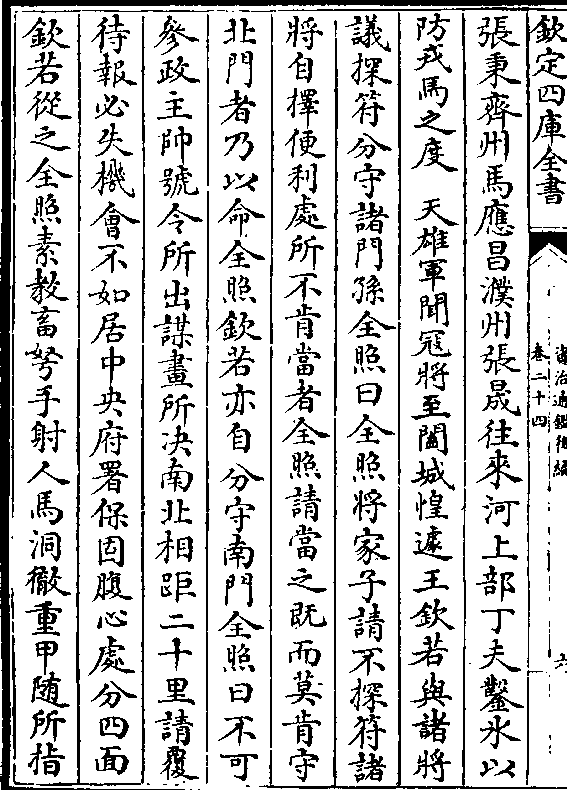 欽定四庫全書
資治通鑑後編
卷二十四
六
張秉齊州馬應昌濮州張晟往來河上部丁夫鑿氷以
防戎馬之度　天雄軍聞寇將至闔城惶遽王欽若與諸將
議探符分守諸門孫全照曰全照將家子請不探符諸
將自擇便利處所不肯當者全照請當之既而莫肯守
北門者乃以命全照欽若亦自分守南門全照曰不可
參政主帥號令所出謀畫所决南北相距二十里請覆
待報必失機會不如居中央府署保固腹心處分四面
欽若從之全照素教畜弩手射人馬洞徹重甲随所指